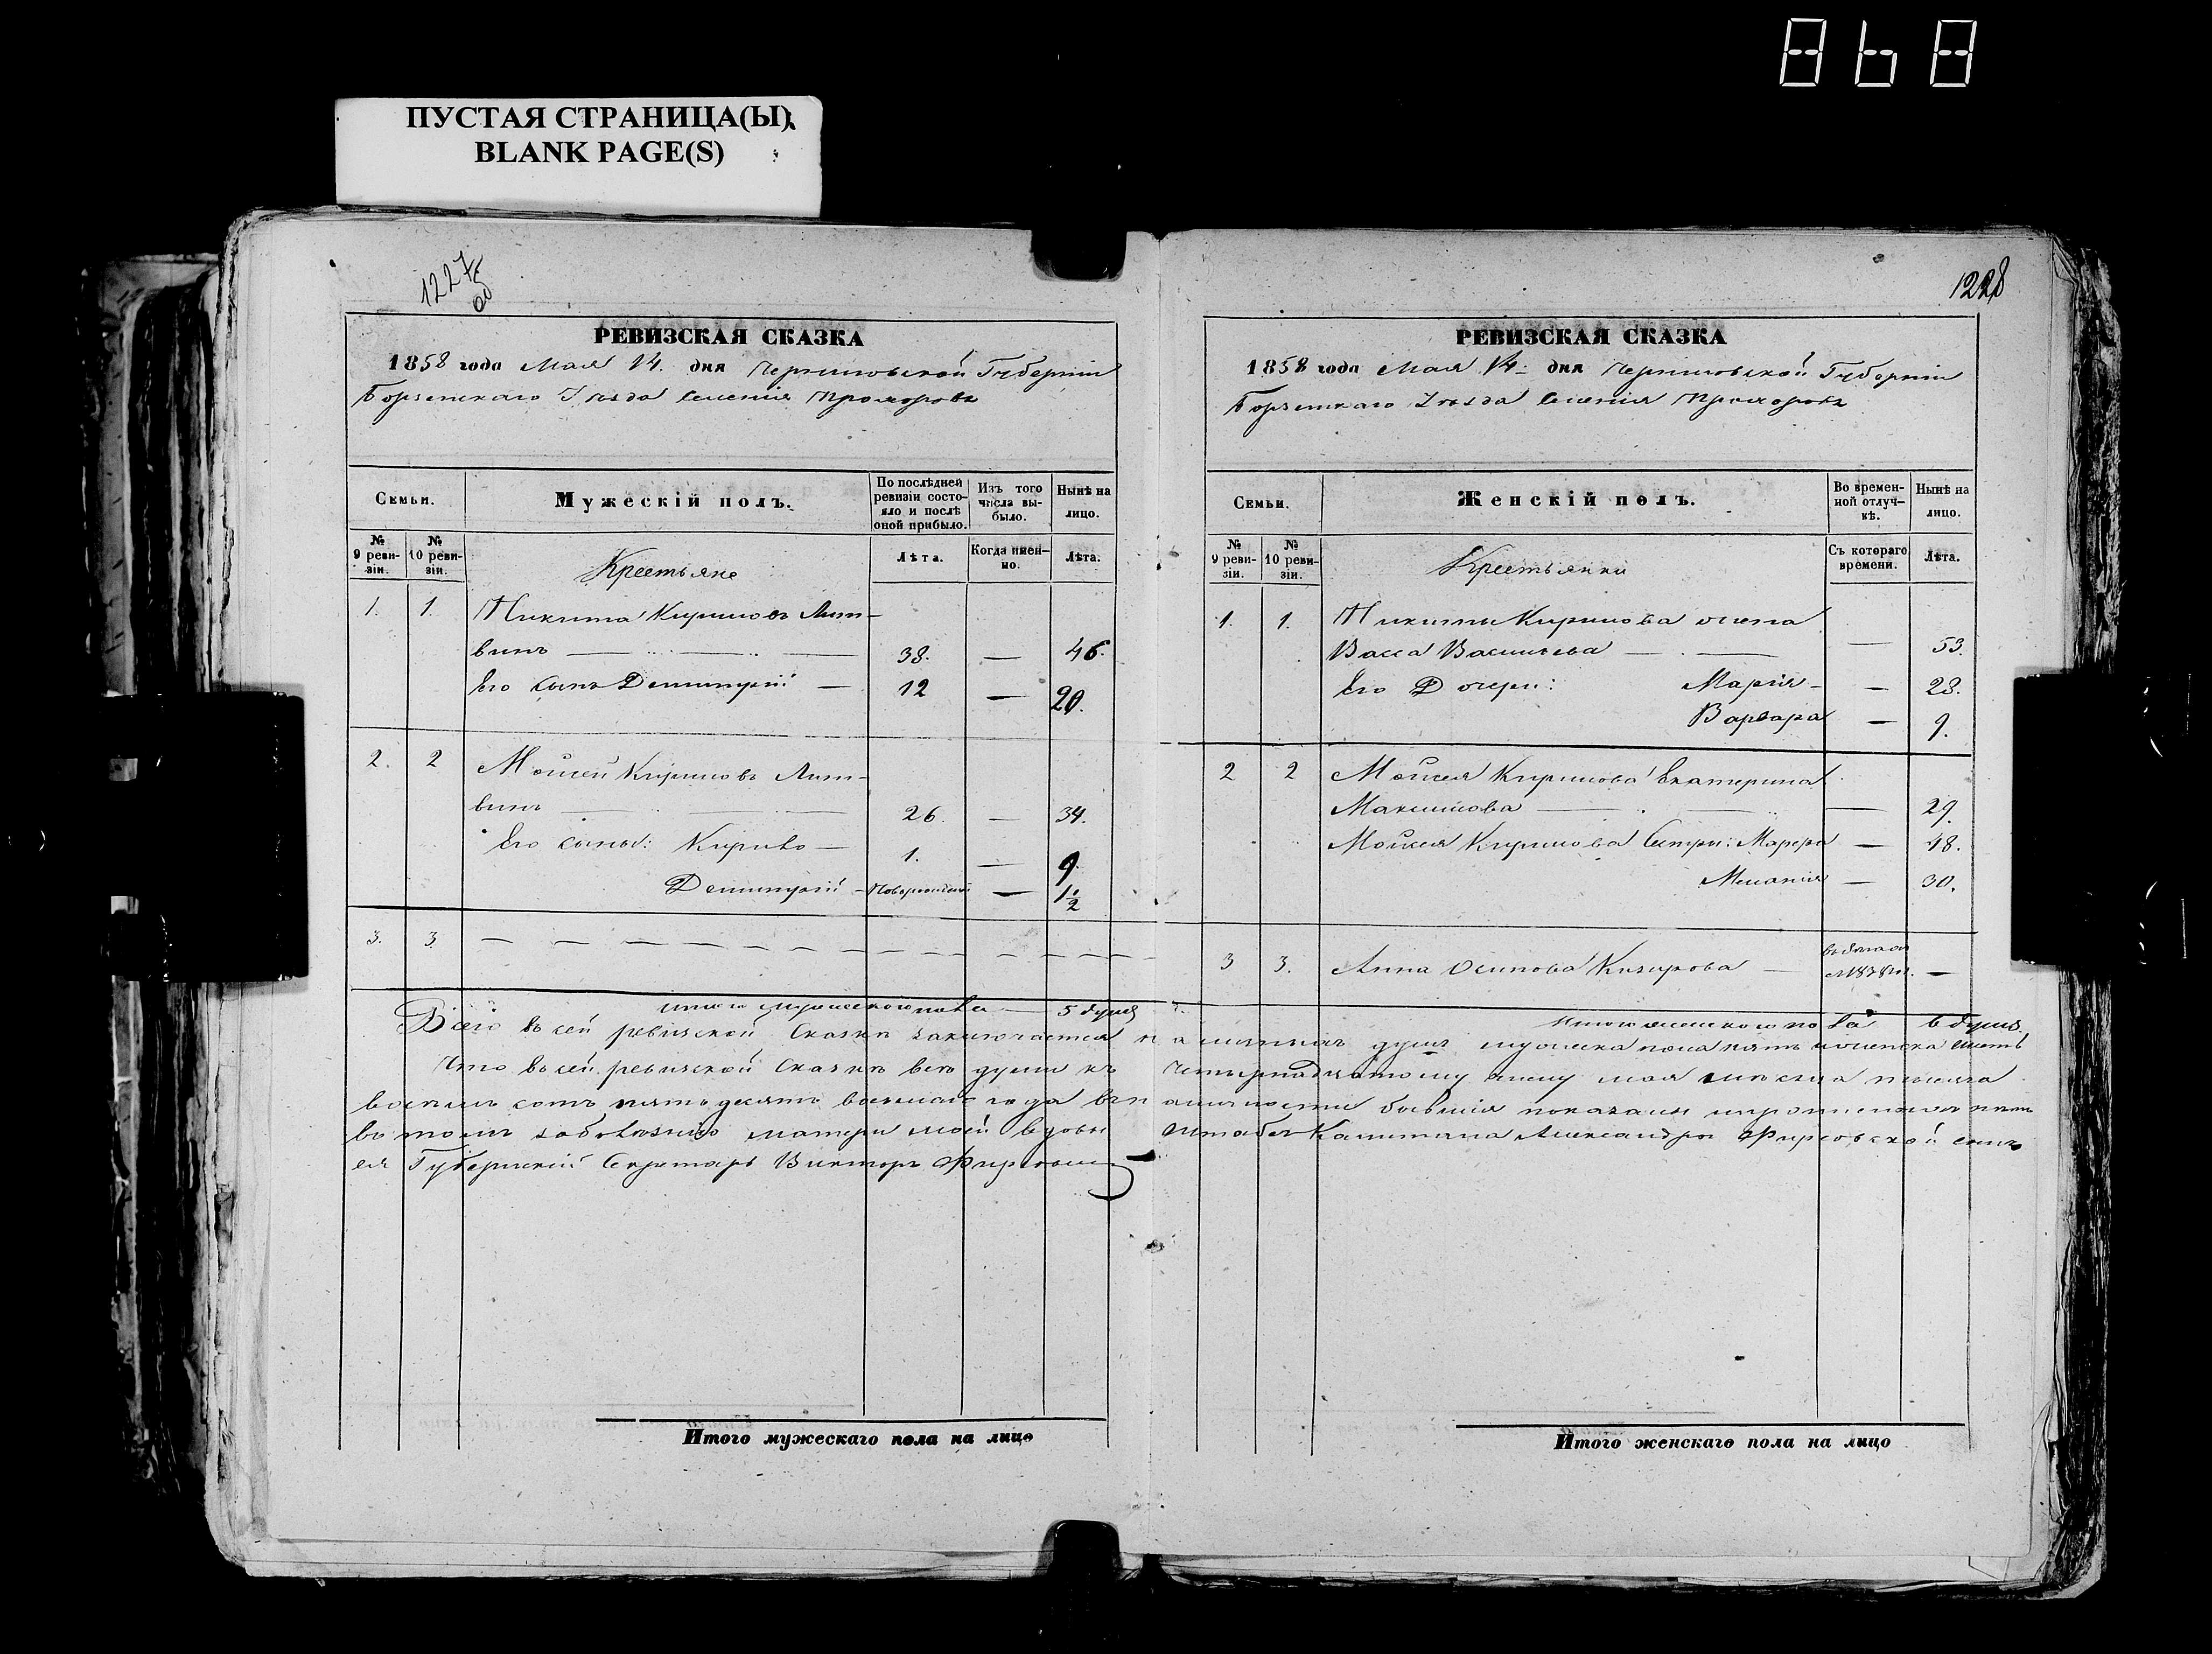 868
ПУСТАЯ СТРАНИЦА(Ы)
BLANK PAGE(S)
1227
об
РЕВИЗСКАЯ СКАЗКА
1858 года Мая 14. дня Черниговской Губерніи
Борзенскаго Уѣзда Селенія Прохоровъ
Семьи.
Мужескій полъ.
По послѣдней ревизіи состояло и послѣ оной прибыло.
Изъ того числа выбыло.
Нынѣ на лицо.
№ 9 ревизіи.
№ 10 ревизіи.
Лѣта.
Когда именно.
Лѣта.
Крестьяне
1. 1. Никита Кириловъ Лит-
винъ — 38. — 46.
Его сынъ Демитрій — 12 — 20.
2. 2 Мойсей Кириловъ Лит-
винъ — 26. — 34.
Его сыны: Кирило — 1. — 9
Демитрій — новорожденъ — 1 1/2
3. 3 — — — — — —
Итого мужескаго пола — 5 душъ
1228
РЕВИЗСКАЯ СКАЗКА
1858 года Мая 14: дня Черниговской Губерніи
Борзенскаго Уѣзда Селенія Прохоровъ
Семьи.
Женскій полъ.
Во временной отлучкѣ.
Нынѣ на лицо.
№ 9 ревизіи.
№ 10 ревизіи.
Съ котораго времени.
Лѣта.
Крестьянки
1. 1. Никиты Кирилова жена
Васса Васильева — — 53.
Его Дочери: Марія — — 28.
Варвара — 9.
2 2 Мойсея Кирилова Екатерина
Максимова — — 29.
Мойсея Кирилова Сестры: Марфа — 48.
Меланія — 30.
3 3. Анна Осипова Кизирова — —
Итого женскаго пола 6 душъ.
Всего въ сей ревизской Сказкѣ заключается наличныхъ душъ мужеска пола пять и женска шесть
Что въ сей ревизской Сказкѣ всѣ души къ Четырнадцатому числу мая мѣсяца тысяча
восемь сотъ пятьдесятъ восьмаго года въ наличности бывшія показаны
въ томъ матери моей вдовы Штабсъ Капитана Александры Фирсовской сынъ
ея Губернскій Секретарь Викторъ
Итого мужескаго пола на лицо
Итого женскаго пола на лицо